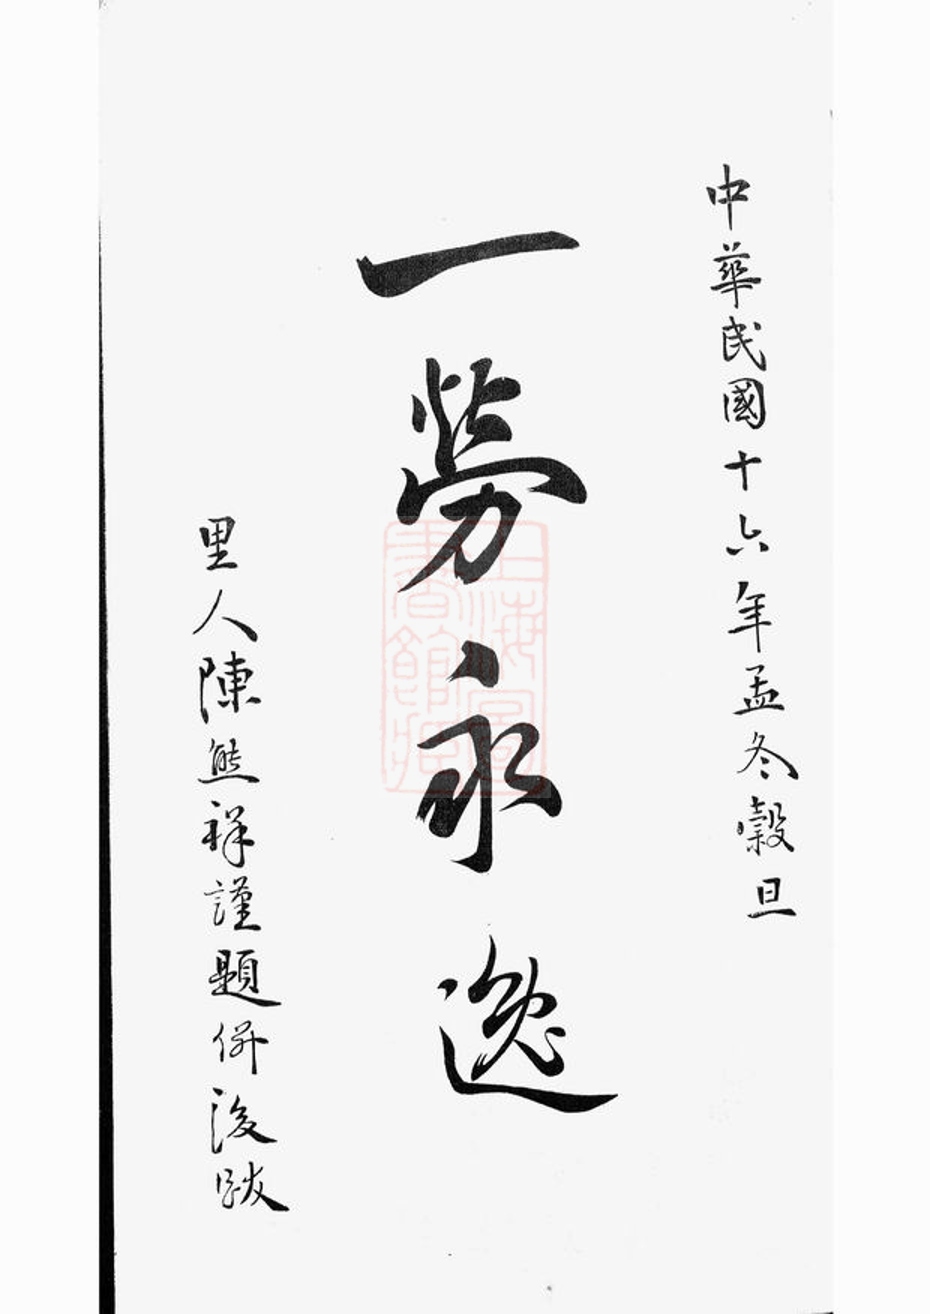 中華民國十六年孟冬穀旦
一勞永逸
里人陳熊祥謹題併後跋
上海圖書館藏